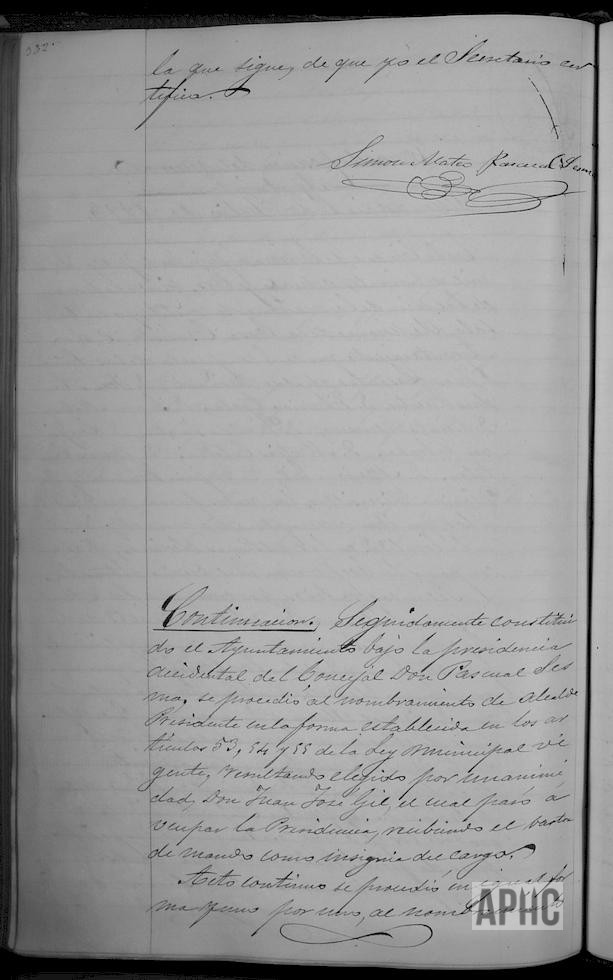 332
la que sigue, de que yo el Secretario cer
tifico.
Simon Mateo Pascual Sesma
Continuacion. Seguidamente constitui
do el Ayuntamiento bajo la presidencia
accidental del Concejal Don Pascual Ses
ma, se procedió al nombramiento de Alcalde
Presidente en la forma establecida en los ar
tículos 53, 54 y 55 de la Ley municipal vi
gente, resultando elegido por unanimi
dad, Don Juan José Gil, el cual pasó á
ocupar la Presidencia, recibiendo el baston
de mando como insignia del cargo.
Acto continuo se procedió en igual for
ma y uno por uno, al nombramiento
APHC